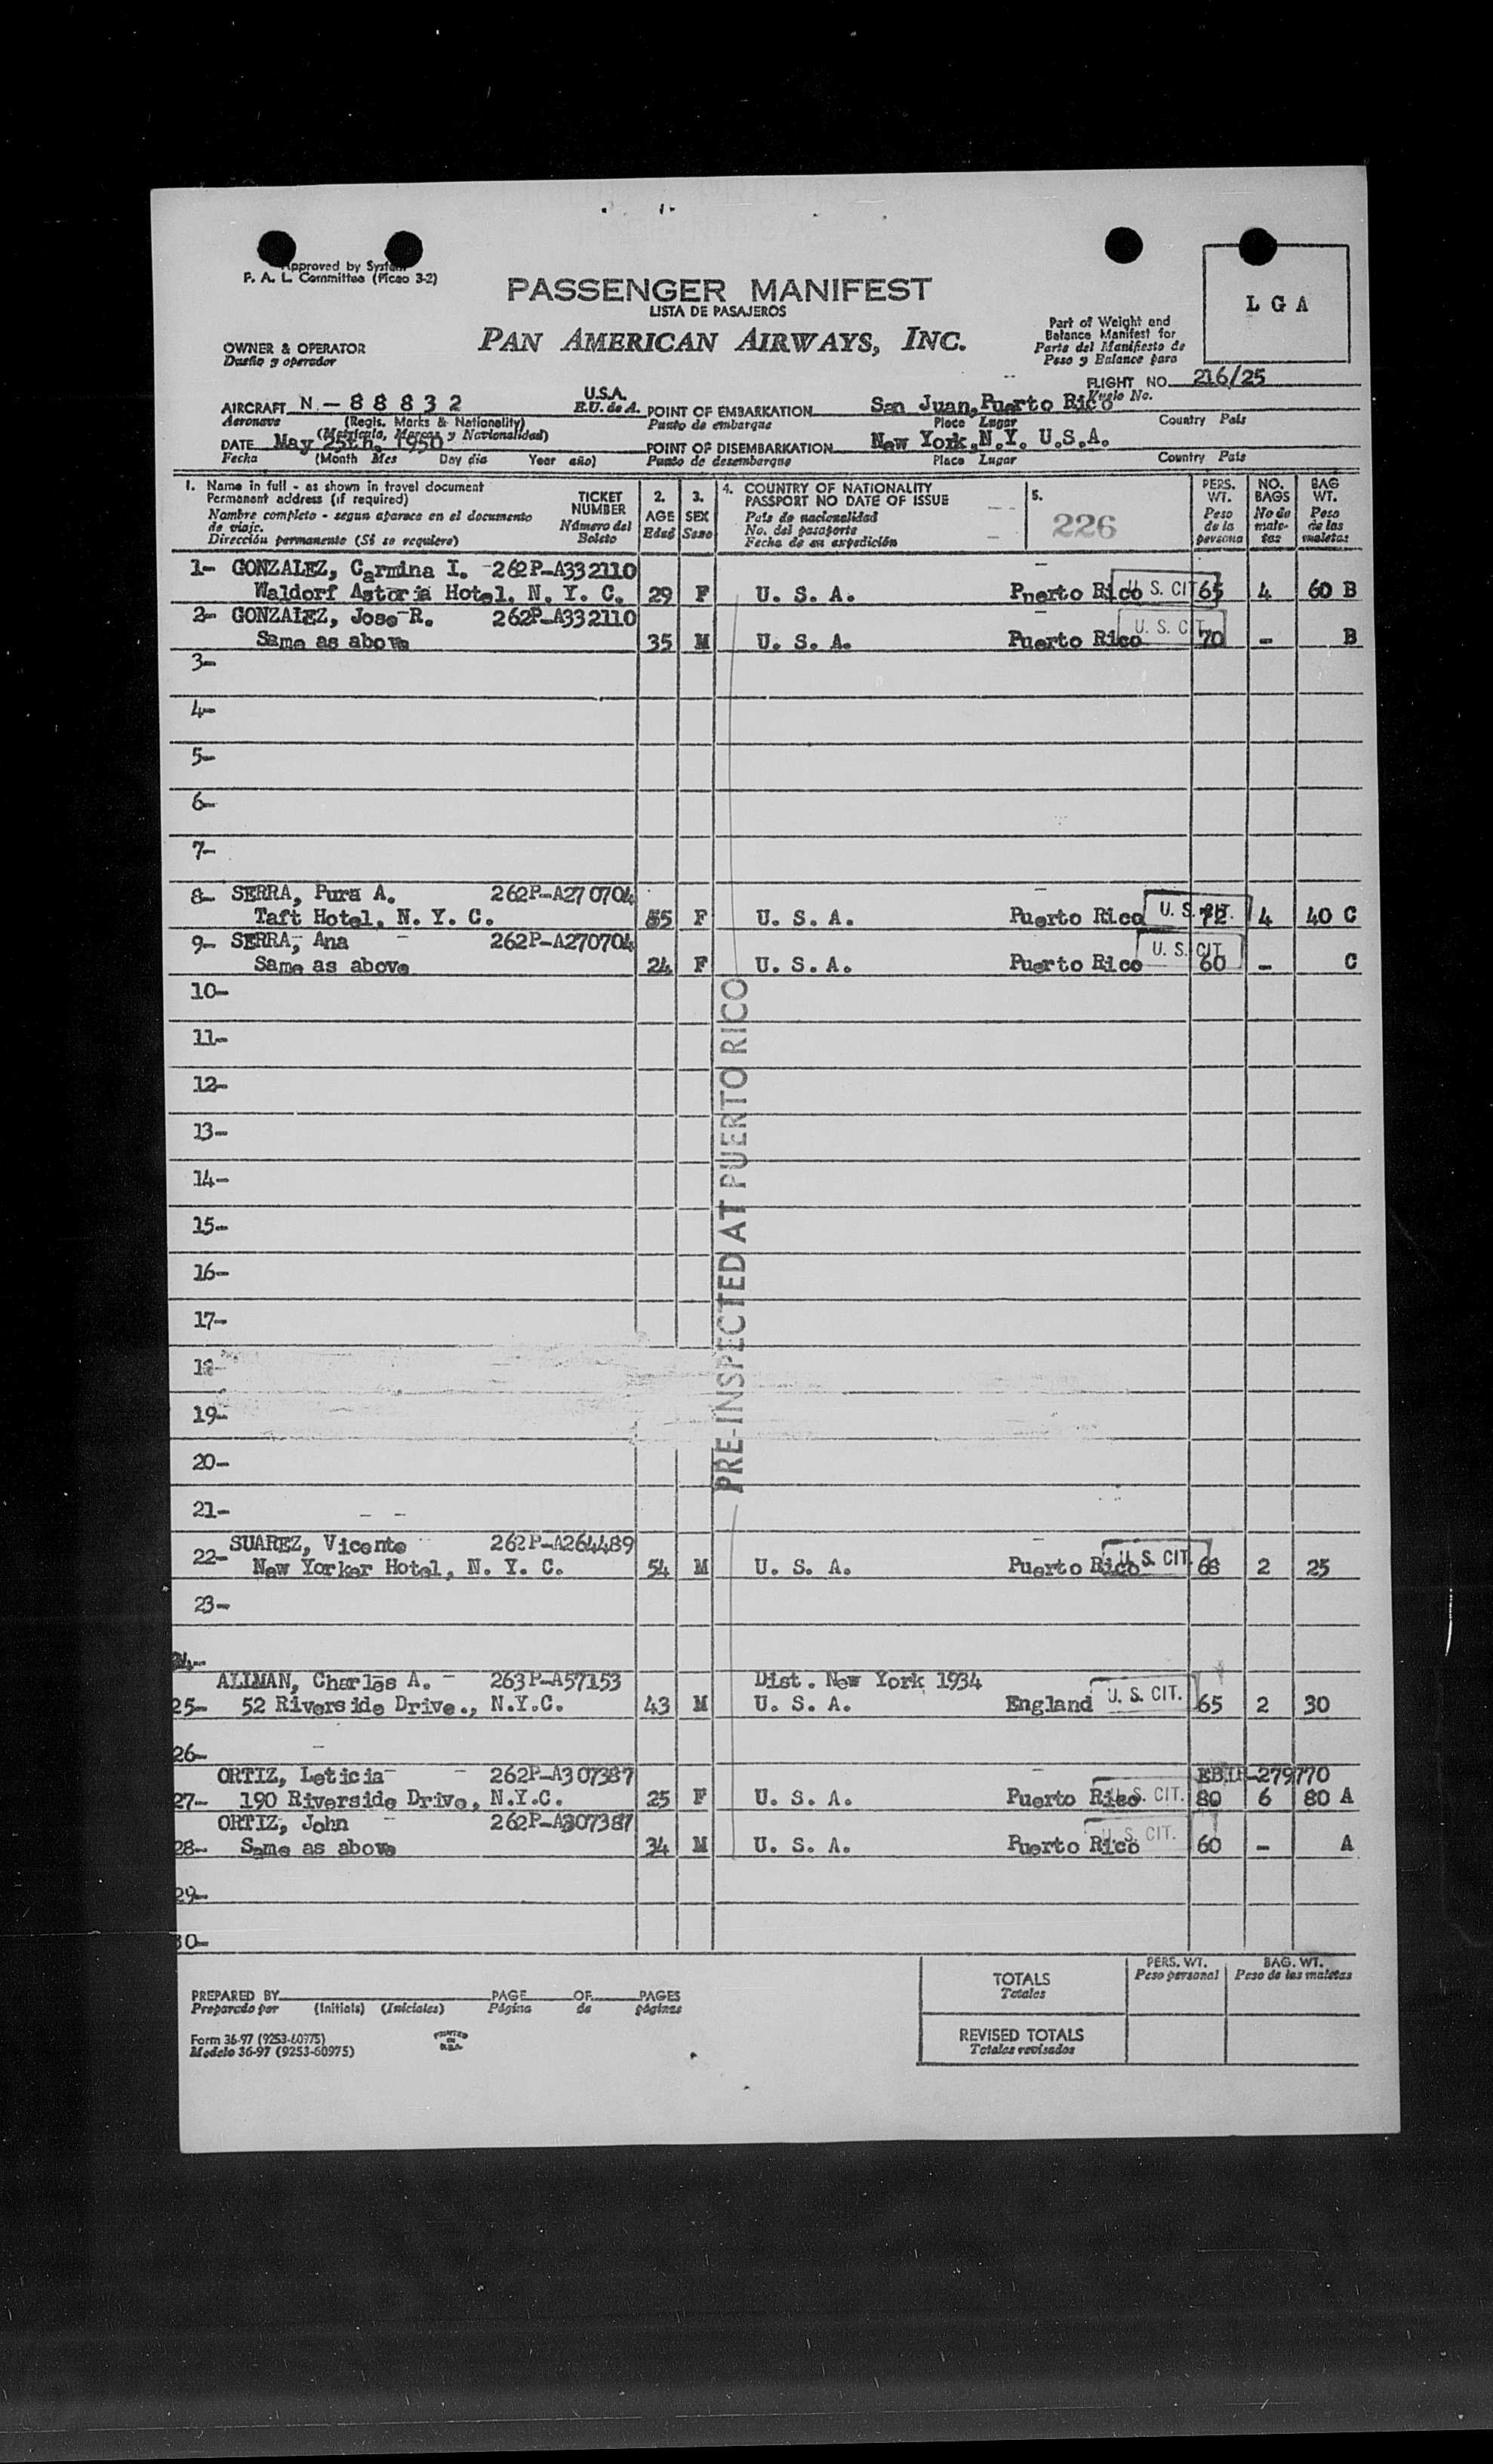 Approved by System
P. A. L. Committee (Picao 3-2)
PASSENGER MANIFEST
LISTA DE PASAJEROS
PAN AMERICAN AIRWAYS, INC.
L G A
Part of Weight and
Balance Manifest for
Parte del Manifiesto de
Peso y Balance para
OWNER & OPERATOR
Dueño y operador
FLIGHT NO. 216/25
Vuelo No.
AIRCRAFT N - 8 8 8 3 2 U.S.A.
Aeronave (Regis. Marks & Nationality) E.U. de A.
(Matrícula, Marcas y Nacionalidad)
POINT OF EMBARKATION San Juan, Puerto Rico
Punto de embarque Place Lugar Country País
DATE May 25th, 1950
Fecha (Month Mes Day día Year año)
POINT OF DISEMBARKATION New York, N.Y. U.S.A.
Punto de desembarque Place Lugar Country País
1. Name in full - as shown in travel document
Permanent address (if required)
Nombre completo - segun aparece en el documento
de viaje.
Dirección permanente (Si se requiere)
TICKET
NUMBER
Número del
Boleto
2.
AGE
Edad
3.
SEX
Sexo
4. COUNTRY OF NATIONALITY
PASSPORT NO DATE OF ISSUE
País de nacionalidad
No. del pasaporte
Fecha de su expedición
5.
226
PERS.
WT.
Peso
de la
persona
NO.
BAGS
No de
male-
tas
BAG
WT.
Peso
de las
maletas
1- GONZALEZ, Carmina I. 262P-A332110
Waldorf Astoria Hotel, N. Y. C. 29 F U. S. A. Puerto Rico U. S. CIT 65 4 60 B
2- GONZALEZ, Jose R. 262P-A332110
Same as above 35 M U. S. A. Puerto Rico U. S. CIT. 70 - B
3-
4-
5-
6-
7-
8- SERRA, Pura A. 262P-A270704
Taft Hotel, N. Y. C. 55 F U. S. A. Puerto Rico U. S. CIT. 72 4 40 C
9- SERRA, Ana 262P-A270704
Same as above 24 F U. S. A. Puerto Rico U. S. CIT 60 - C
10-
11-
12-
13-
14-
15-
16-
17-
18-
19-
20-
21-
PRE-INSPECTED AT PUERTO RICO
SUAREZ, Vicente 262P-A264489
22- New Yorker Hotel, N. Y. C. 54 M U. S. A. Puerto Rico U. S. CIT. 68 2 25
23-
24-
ALIMAN, Charles A. 263P-A57153 Dist. New York 1934
25- 52 Riverside Drive., N.Y.C. 43 M U. S. A. England U. S. CIT. 65 2 30
26-
ORTIZ, Leticia 262P-A307387 -279770
27- 190 Riverside Drive, N.Y.C. 25 F U. S. A. Puerto Rico U. S. CIT. 80 6 80 A
ORTIZ, John 262P-A307387
28- Same as above 34 M U. S. A. Puerto Rico U. S. CIT. 60 - A
29-
30-
PREPARED BY PAGE OF PAGES
Preparado por (Initials) (Iniciales) Página de páginas
TOTALS
Totales
PERS. WT.
Peso personal
BAG. WT.
Peso de las maletas
REVISED TOTALS
Totales revisados
Form 36-97 (9253-60975)
Modelo 36-97 (9253-60975)
PRINTED
IN
U.S.A.